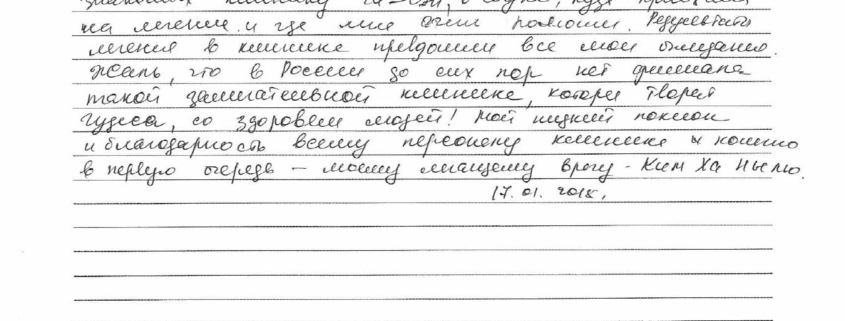 на лечение и где мне очень помогли. Результаты
лечения в клинике превзошли все мои ожидания.
Жаль, что в России до сих пор нет филиала
такой замечательной клиники, которая творит
чудеса, со здоровьем людей! Мой низкий поклон
и благодарность всему персоналу клиники и конечно
в первую очередь – моему лечащему врачу - Ким Ха Нылю.
17.01.2018.